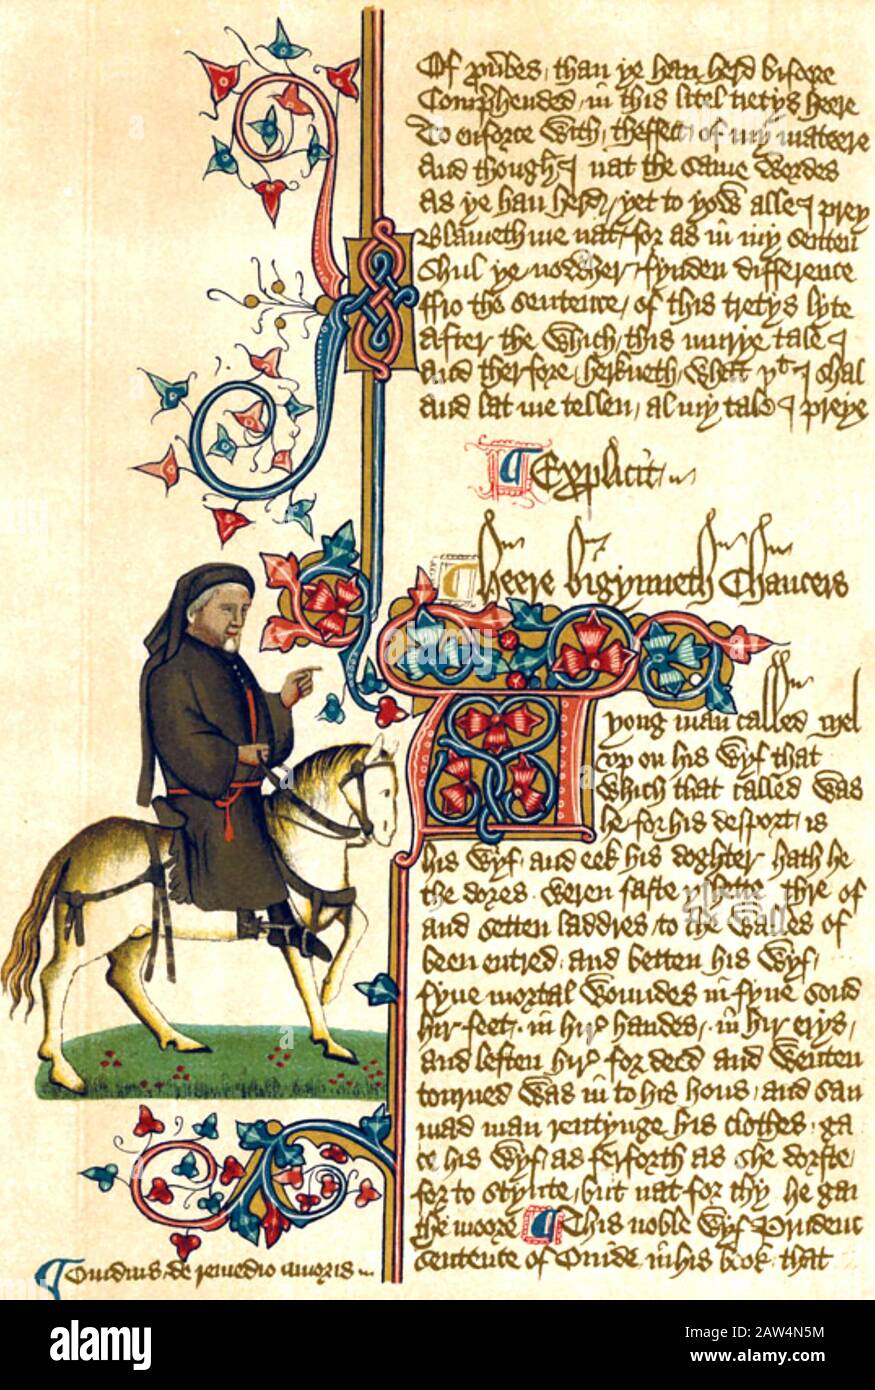 Of prouerbes / than ye han herd bifore
Comprehended / in this litel tretys heere
To enforce with / theffect / of my mateere
And though I nat the same wordes
as ye han herd / yet to yow alle I prey
Blameth me nat / for as in my senten
Shul ye nowher / fynden difference
ffro the sentence / of this tretys lyte
After the which / this murye tale I
And therfore herkneth / what þt I shal
And lat me tellen / al my tale I preye
¶ Explicit
¶ heere bigynneth Chaucers
yong man called Mel
vp on his wyf that
which that called was
he for his desport / is
his wyf / and eek his doghter / hath he
the dores weren faste yshette / thre of
and setten laddres / to the walles of
been entred / and betten his wyf /
fyue mortal woundes in fyue sond
hir feet / in hir handes / in hir erys /
and leften hir for deed and wenten
tourned was in to his hous / and sau
mad man rentynge his clothes / ga
ce his wyf / as ferforth as she dorste /
for to stynte / but nat for thy he gan
the moore ¶ This noble wyf Prudenc
sentence of Ouide / in his book that
¶ Ouidius de remedio amoris
alamy
Image ID: 2AW4N5M
www.alamy.com